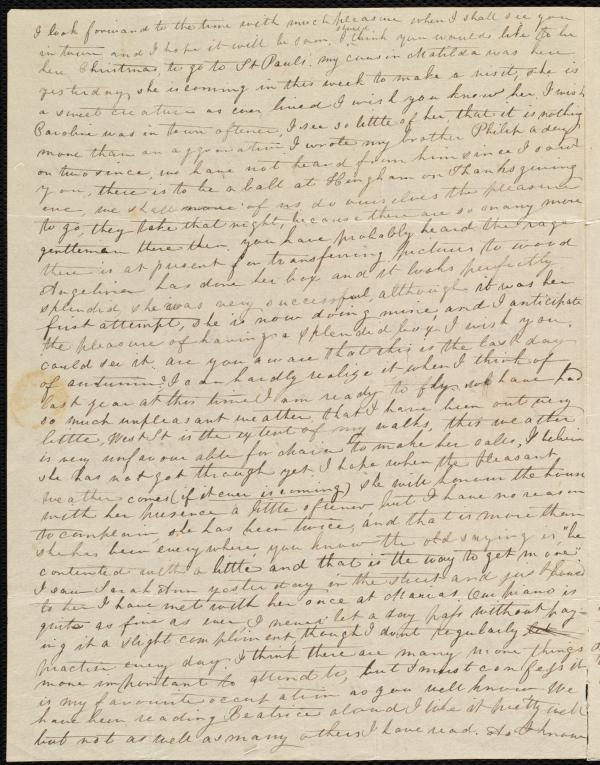 I look forward to the time with much pleasure when I shall see you
in town and I hope it will be soon, I should think you would like to be
here Christmas, to go to St Pauls. my cousin Matilda was here
yesterday, she is coming in this week to make a visit, she is
a sweet creature as ever lived I wish you knew her, I wish
Caroline was in town oftener, I see so little of her, that it is nothing
more than an aggravation I wrote my brother Philip a day
or two since, we have not heard from him since I saw
you, there is to be a ball at Hingham on Thanksgiving
eve, we shall none of us do ourselves the pleasure
to go, they take that night, because there are so many more
gentlemen there then, you have probably heard the rage
there is at present for transferring pictures to wood
Angelina has done her box and it looks perfectly
splendid, she was very successful, although it was her
first attempt, she is now doing mine, and I anticipate
the pleasure of having a splendid box I wish you
could see it. are you aware that this is the last day
of autumn? I can hardly realize it when I think of
last year at this time I am ready to fly. we have had
so much unpleasant weather, that I have been out very
little, West St is the extent of my walks, this weather
is very unfavourable for to make her calls, I believe
she has not got through yet I hope when the pleasant
weather comes (if it ever is coming) she will honour the house
with her presence a little oftener, but I have no reason
to complain, she has been twice, and that is more than
she has been everywhere, you know the old saying is "be
contented with a little and that is the way to get more"
I saw Sarah Ann yesterday in the street and just
to her I have met with her once at Marias. Our piano is
quite as fine as ever I never let a day pass without pay-
ing it a slight compliment though I dont regularly
practice every day. I think there are many more things
more important to attend to, but I must confess it
is my favourite occupation as you well know We
have been reading Beatrice aloud I like it pretty well
but not as well as many others I have read. As I know